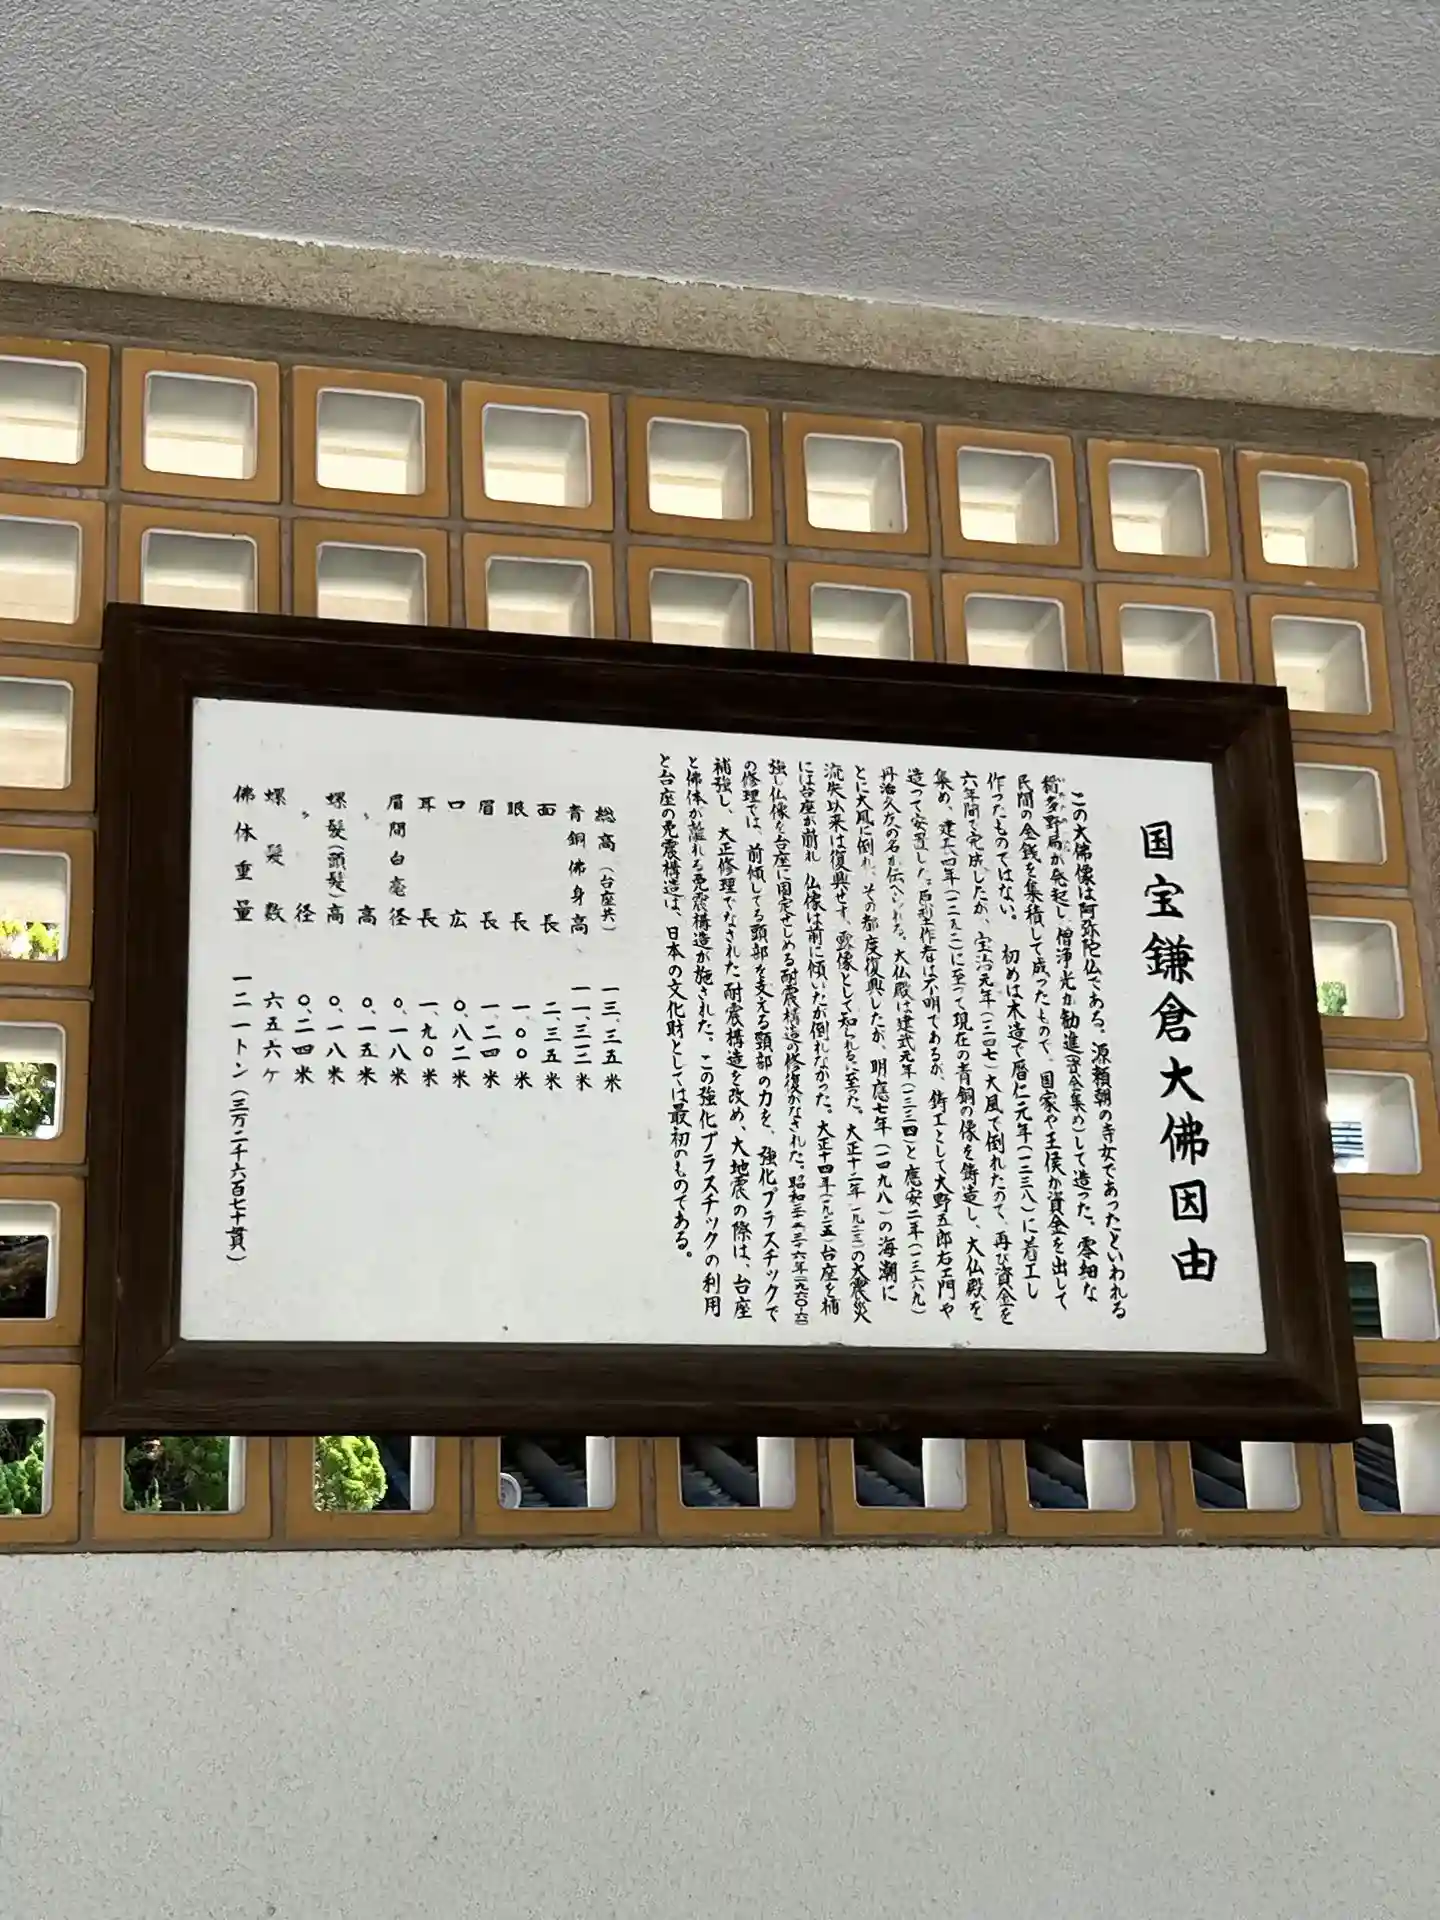 国宝鎌倉大佛因由
この大佛像は阿弥陀仏である。源頼朝の侍女であったといわれる
稲多野局が発起し、僧浄光が勧進(資金集め)して造った。零細な
民間の金銭を集積して成ったもので、国家や王侯が資金を出して
作ったものではない。 初めは木造で暦仁元年(一二三八)に着工し
六年間で完成したが、宝治元年(一二四七)大風で倒れたので、再び資金を
集め、建長四年(一二五二)に至って現在の青銅の像を鋳造し、大仏殿を
造って安置した。原型作者は不明であるが、鋳工として大野五郎右エ門や
丹治久友の名が伝へられる。大仏殿は建武元年(一三三四)と應安二年(一三六九)
とに大風に倒れ、その都度復興したが、明應七年(一四九八)の海潮に
流失以来は復興せず、露像として知られるに至った。大正十二年(一九二三)の大震災
には台座が崩れ、仏像は前に傾いたが倒れなかった。大正十四年(一九二五)台座を補
強し仏像を台座に固定せしめる耐震構造の修復がなされた。昭和三五、三十六年(一九六〇-六一)
の修理では、前傾してる頭部を支える頸部の力を、強化プラスチックで
補強し、大正修理でなされた耐震構造を改め、大地震の際は、台座
と佛体が離れる免震構造が施された。この強化プラスチックの利用
と台座の免震構造は、日本の文化財としては最初のものである。
総高(台座共) 一三.三五米
青銅佛身高 一一.三一二米
面長 二.三五米
眼長 一.〇〇米
眉長 一.二四米
口広 〇.八二米
耳長 一.九〇米
眉間白毫径 〇.一八米
〃 高 〇.一五米
螺髪(頭髪)高 〇.一八米
〃 径 〇.二四米
螺髪数 六五六ケ
佛体重量 一二一トン(三万二千六百七十貫)